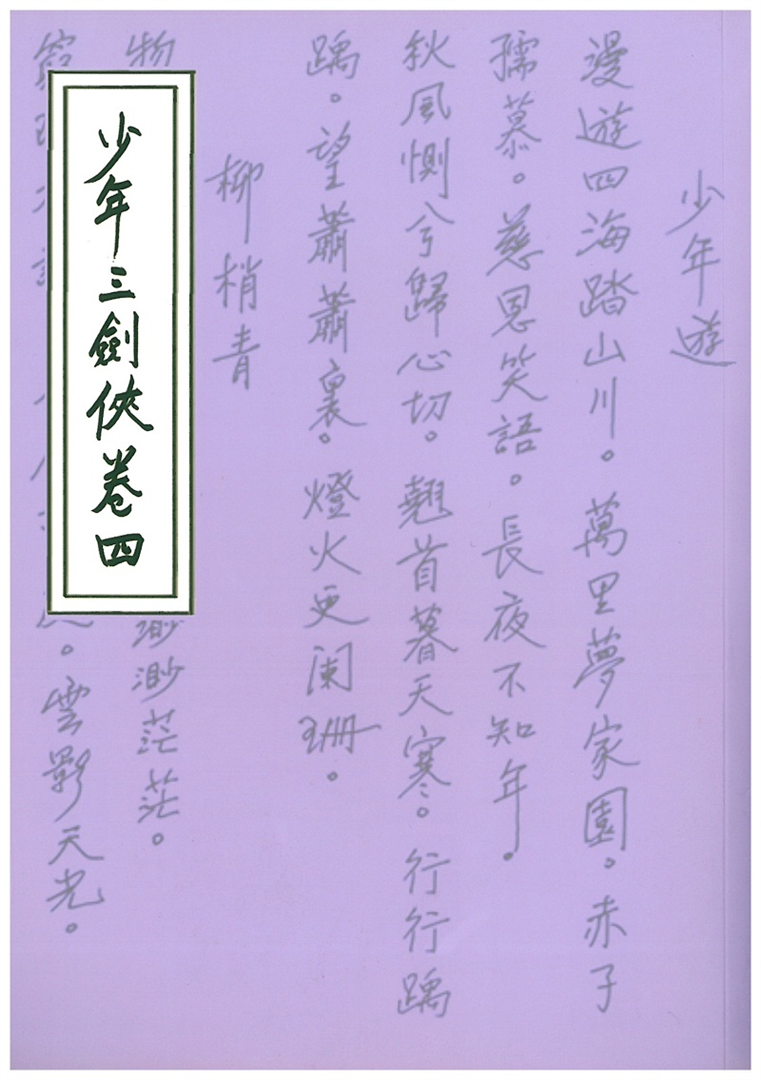 少年遊
漫遊四海踏山川。萬里夢家園。赤子
孺慕。慈恩笑語。長夜不知年。
秋風惻兮歸心切。翹首暮天寒。行行踽
踽。望蕭蕭裏。燈火更闌珊。
柳梢青
物渺渺茫茫。
。雲影天光。
少年三劍俠卷四